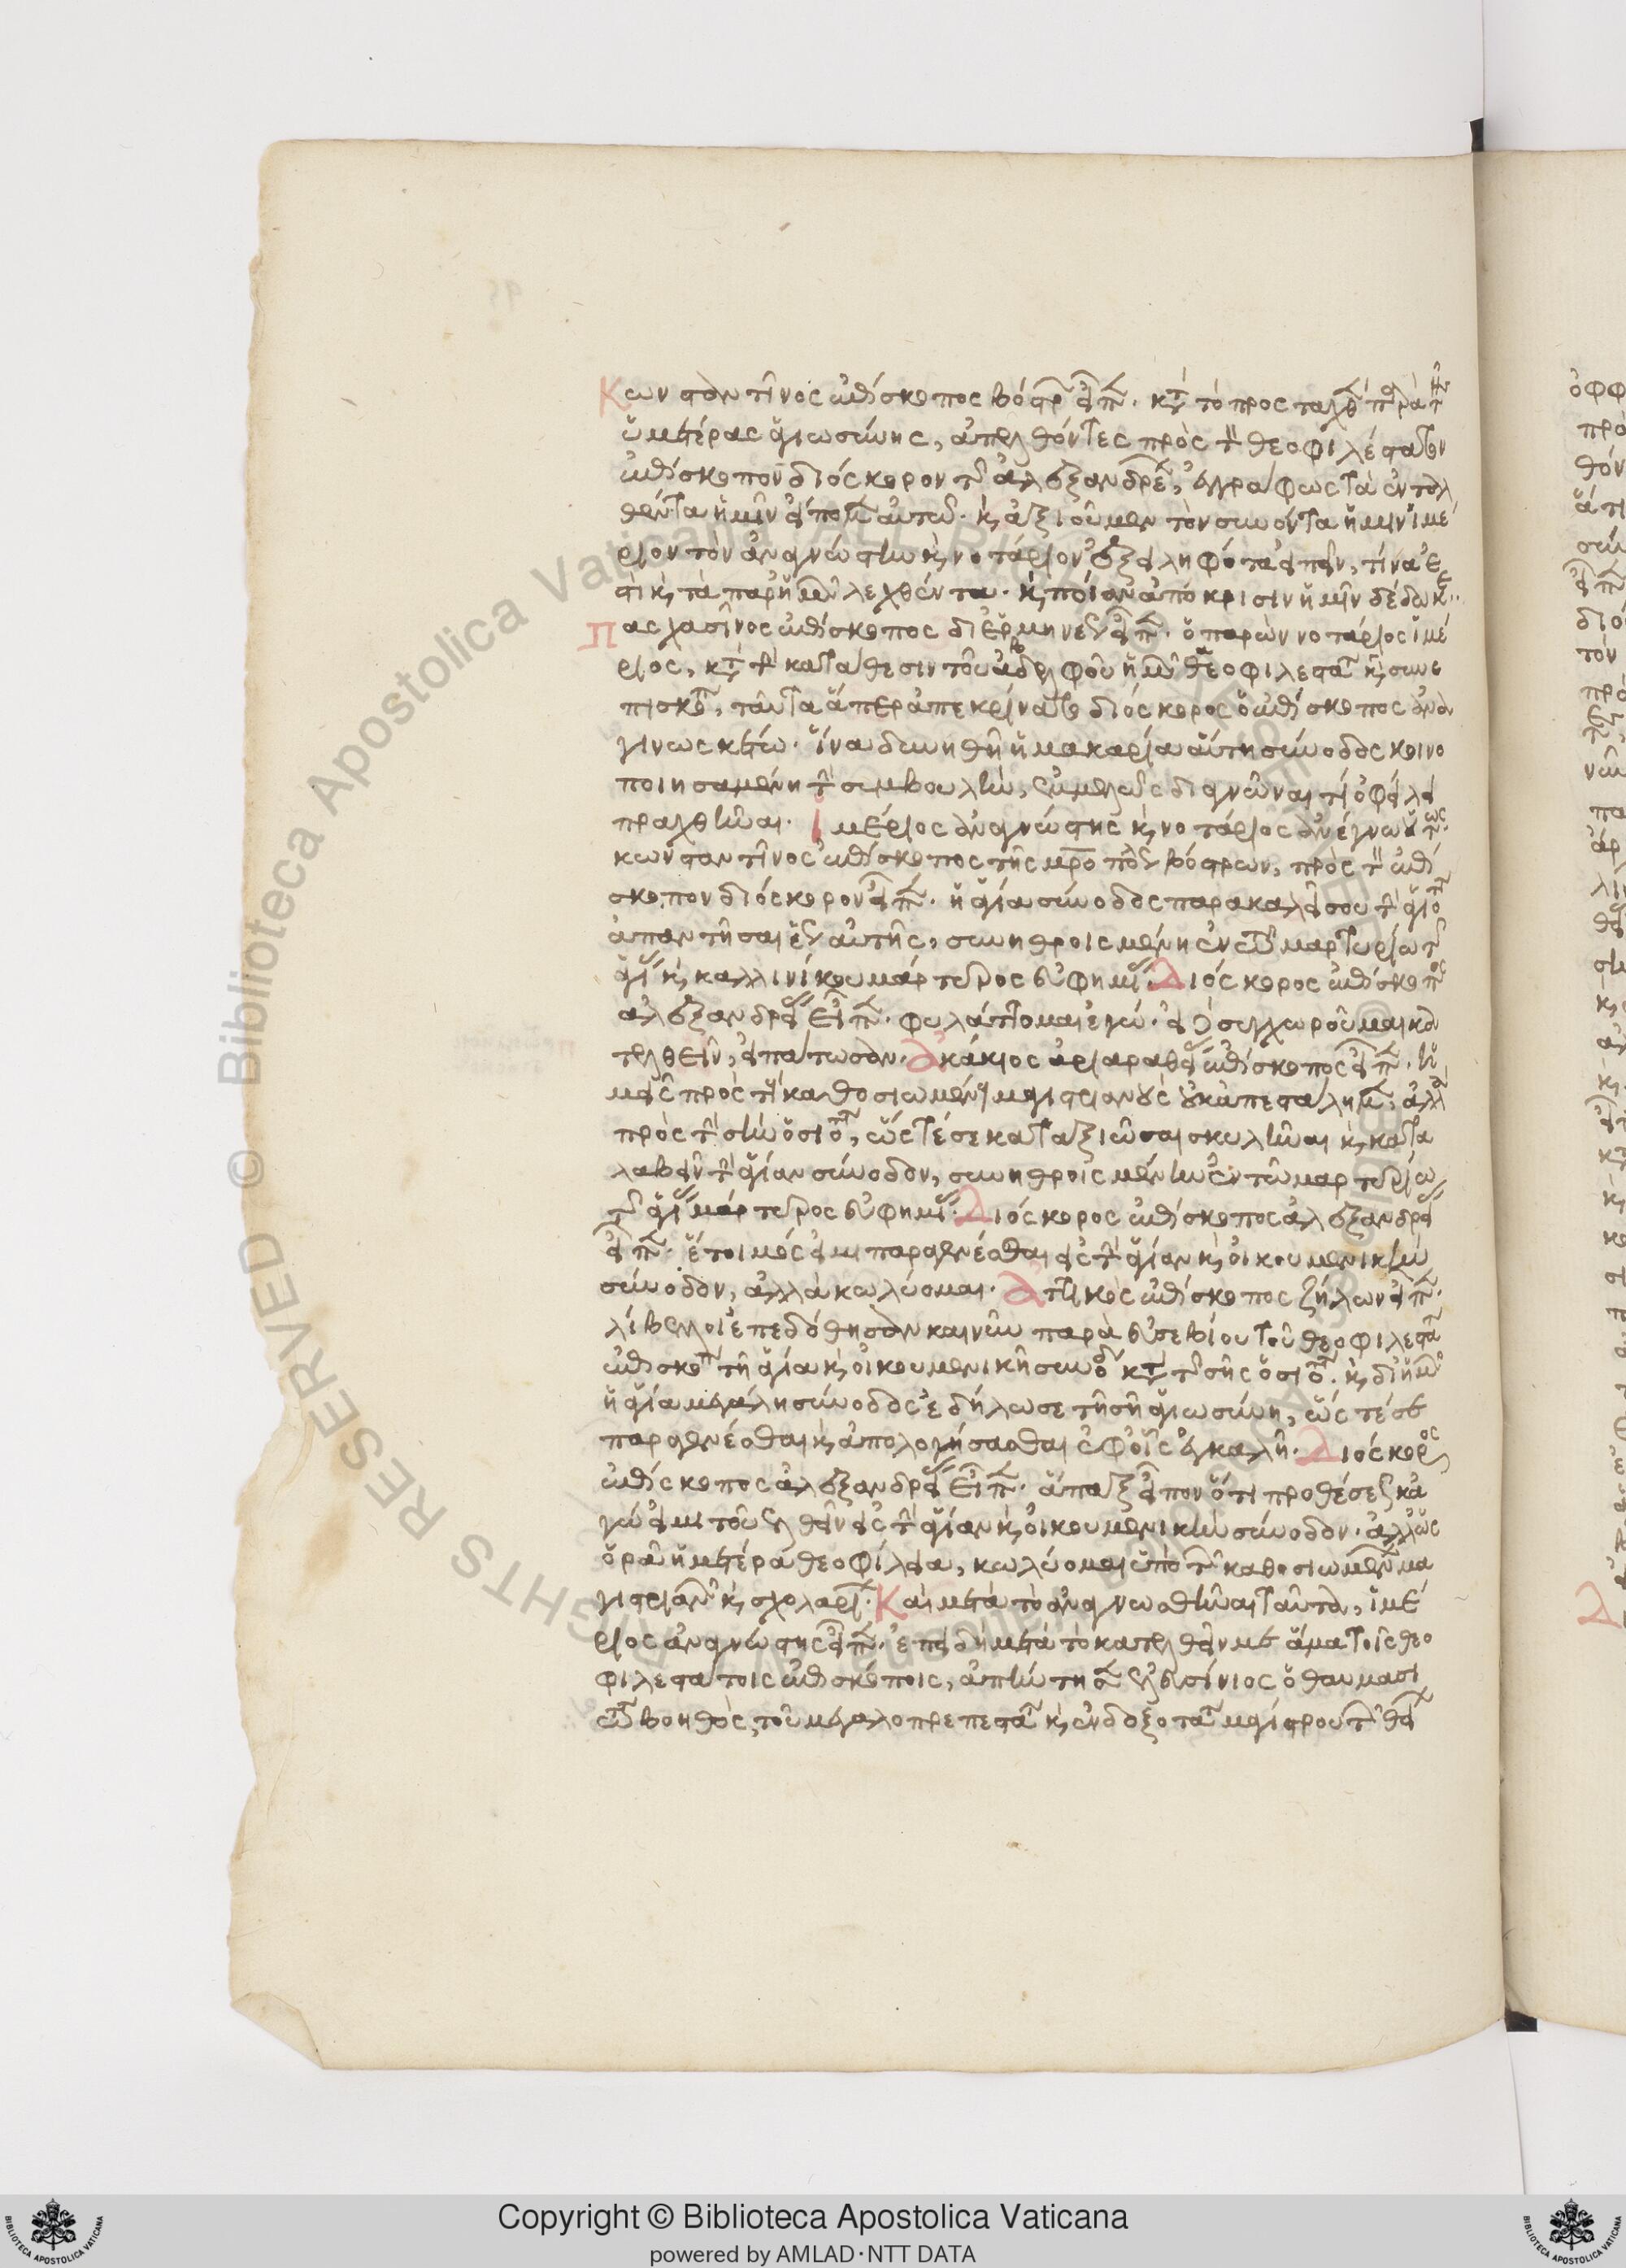 Κωνσταντῖνος ἐπίσκοπος βόστρ εἶπ. κατ τὸ προσταχθ παρὰ τ
ὑμετέρας ἁγιωσύνης, ἀπελθόντες πρὸς τ θεοφιλέστατον
ἐπίσκοπον διόσκορον τ ἀλεξανδρε, ἐγράφως τὰ ἐντολ
θέντα ἡμῖν εἴπομ αὐτῶ. κ, ἀξιοῦμεν τὸν συνόντα ἡμῖν ἱμέ
ριον τὸν ἀναγνώστην κ, νοτάριον ἐξειληφότα εἰπεῖν, τίνα ἐ
στὶ κ, τὰ παρ' ἡμῶν λεχθέντα. κ, ποίαν ἀπόκρισιν ἡμῖν δέδωκε.
Πασχασῖνος ἐπίσκοπος δι' ἑρμηνέως εἶπ. ὁ παρὼν νοτάριος ἱμέ
ριος, κατ τ κατάθεσιν τοῦ ἀδελφοῦ ἡμῶν θεοφιλεστα κ, συνε
πισκοπ, ταῦτα ἅπερ ἀπεκρίνατο διόσκορος ὁ ἐπίσκοπος ἀνα
γινωσκέτω. ἵνα δυνηθῆ ἡ μακαρία αὕτη σύνοδος κοινο
ποιησαμένη τ συμβουλὴν, ἐμμελῶς διαγνῶναι τί ὀφείλει
πραχθῆναι. Ἱμέριος ἀναγνώστης κ, νοτάριος ἀνέγνω οὕτως.
κωνσταντῖνος ἐπίσκοπος τῆς μρο πόλ βόστρων, πρὸς τ ἐπί
σκοπον διόσκορον εἶπ. ἡ ἁγία σύνοδος παρακαλεῖ σου τ ἁγιοτ
ἀπαντῆσαι ἕως αὐτῆς, συνηθροισμένης ἐν τῶ μαρτυρίω τ
ἁγί κ, καλλινίκου μάρτυρος εὐφημί. Διόσκορος ἐπίσκοπος
ἀλεξανδρεί εἶπ. φυλάττομαι ἐγώ. εἰ συγχωροῦμαι κα
τελθεῖν, εἰπάτωσαν. Ἀκάκιος ἀριαραθεί ἐπίσκοπος εἶπ. ἡ
μεῖς πρὸς τ καθοσιωμέν μαγιστριανοὺς οὐκ ἀπεστάλημ, ἀλλὰ
πρὸς τ σὴν ὁσιότ, ὥστέ σε καταξιῶσαι σκυλῆναι κ, κατα
λαβεῖν τ ἁγίαν σύνοδον, συνηθροισμένην ἐν τῶ μαρτυρίω
τ ἁγί μάρτυρος εὐφημί. Διόσκορος ἐπίσκοπος ἀλεξανδρεί
εἶπ. ἕτοιμός εἰμι παραγενέσθαι εἰς τ ἁγίαν κ, οἰκουμενικὴν
σύνοδον, ἀλλὰ κωλύομαι. Ἀττικὸς ἐπίσκοπος ζήλων εἶπ.
λίβελλοι ἐπεδόθησαν καινῶν παρὰ εὐσεβίου τοῦ θεοφιλεστα
ἐπισκόπ τῆ ἁγία κ, οἰκουμενικῆ συνόδ κατ τ σῆς ὁσιότ. κ, δι' ἡμῶ
ἡ ἁγία μεγάλη σύνοδος ἐδήλωσε τῆ σῆ ἁγιωσύνη, ὥστέ σε
παραγενέσθαι κ, ἀπολογήσασθαι ἐφ' οἷς ἐγκαλῆ. Διόσκορος
ἐπίσκοπος ἀλεξανδρεί εἶπ. ἅπαξ εἶπον ὅτι προθέσεως κἀ
γώ εἰμι τοῦ ἐλθεῖν εἰς τ ἁγίαν κ, οἰκουμενικὴν σύνοδον. ἀλλ' ὡς
ὁρᾶ ἡ ὑμετέρα θεοφίλεια, κωλύομαι ὑπὸ τ καθοσιωμέν μα
γιστριαν κ, σχολαρί. Καὶ μετὰ τὸ ἀναγνωσθῆναι ταῦτα, ἱμέ
ριος ἀναγνώστης εἶπ. ἐπειδὴ μετὰ τὸ κατελθεῖν με ἅμα τοῖς θεο
φιλεστάτοις ἐπισκόποις, ἀπήντησ ἐλευσίνιος ὁ θαυμασι
ώτ βοηθὸς, τοῦ μεγαλοπρεπεστα κ, ἐνδοξοτα μαγίστρου τ θεί